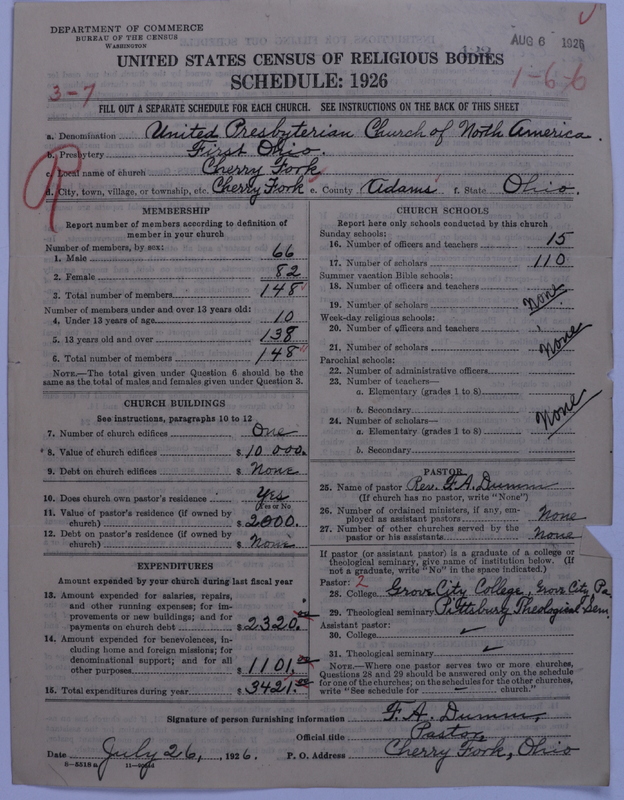 DEPARTMENT OF COMMERCE
BUREAU OF THE CENSUS
WASHINGTON
AUG 6 1926
UNITED STATES CENSUS OF RELIGIOUS BODIES
SCHEDULE: 1926
1-6-6
3-7
FILL OUT A SEPARATE SCHEDULE FOR EACH CHURCH. SEE INSTRUCTIONS ON THE BACK OF THIS SHEET
a. Denomination United Presbyterian Church of North America.
b. Presbytery First Ohio.
c. Local name of church Cherry Fork
d. City, town, village, or township, etc. Cherry Fork e. County Adams f. State Ohio.
R
MEMBERSHIP
Report number of members according to definition of member in your church
Number of members, by sex:
1. Male 66
2. Female 82
3. Total number of members 148
Number of members under and over 13 years old:
4. Under 13 years of age 10
5. 13 years old and over 138
6. Total number of members 148
NOTE.—The total given under Question 6 should be
same as the total of males and females given under Question 3.
CHURCH BUILDINGS
See instructions, paragraphs 10 to 12
7. Number of church edifices One
8. Value of church edifices $ 10 000.
9. Debt on church edifices $ None
10. Does church own pastor's residence Yes
(Yes or No)
11. Value of pastor's residence (if owned by
church) $ 2000.
12. Debt on pastor's residence (if owned by
church) $ None
EXPENDITURES
Amount expended by your church during last fiscal year
13. Amount expended for salaries, repairs,
and other running expenses; for im-
provements or new buildings; and for
payments on church debt $ 2320.
14. Amount expended for benevolences, in-
cluding home and foreign missions; for
denominational support; and for all
other purposes $ 1101.
15. Total expenditures during year $ 3421.
CHURCH SCHOOLS
Report here only schools conducted by this church
Sunday schools:
16. Number of officers and teachers 15
17. Number of scholars 110
Summer vacation Bible schools:
18. Number of officers and teachers
19. Number of scholars None
Week-day religious schools:
20. Number of officers and teachers
21. Number of scholars None
Parochial schools:
22. Number of administrative officers
23. Number of teachers—
a. Elementary (grades 1 to 8)
b. Secondary
24. Number of scholars— None
a. Elementary (grades 1 to 8)
b. Secondary
PASTOR
25. Name of pastor Rev. F. A. Dumm
(If church has no pastor, write "None")
26. Number of ordained ministers, if any, em-
ployed as assistant pastors None
27. Number of other churches served by the
pastor or his assistants None
If pastor (or assistant pastor) is a graduate of a college or
theological seminary, give name of institution below. (If
not a graduate, write "No" in the space indicated.)
Pastor: 2
28. College Grove City College, Grove City Pa.
29. Theological seminary Pittsburg Theological Sem.
Assistant pastor:
30. College ✓
31. Theological seminary ✓
NOTE.—Where one pastor serves two or more churches,
Questions 28 and 29 should be answered only on the schedule
for one of the churches; on the schedules for the other churches,
write "See schedule for — church."
Signature of person furnishing information F. A. Dumm,
Official title Pastor,
Date July 26, 1926. P. O. Address Cherry Fork, Ohio
8-5518 a